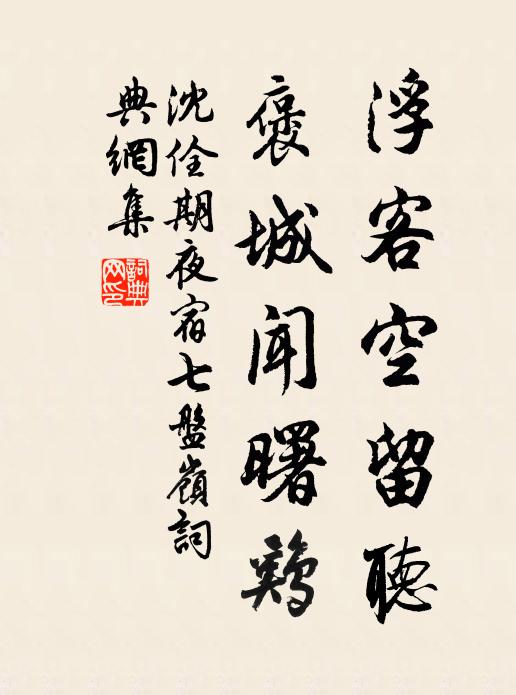 浮客空留聽
褒城聞曙鷄
沈佺期夜宿七盤嶺詞
典網集
詞典
网印